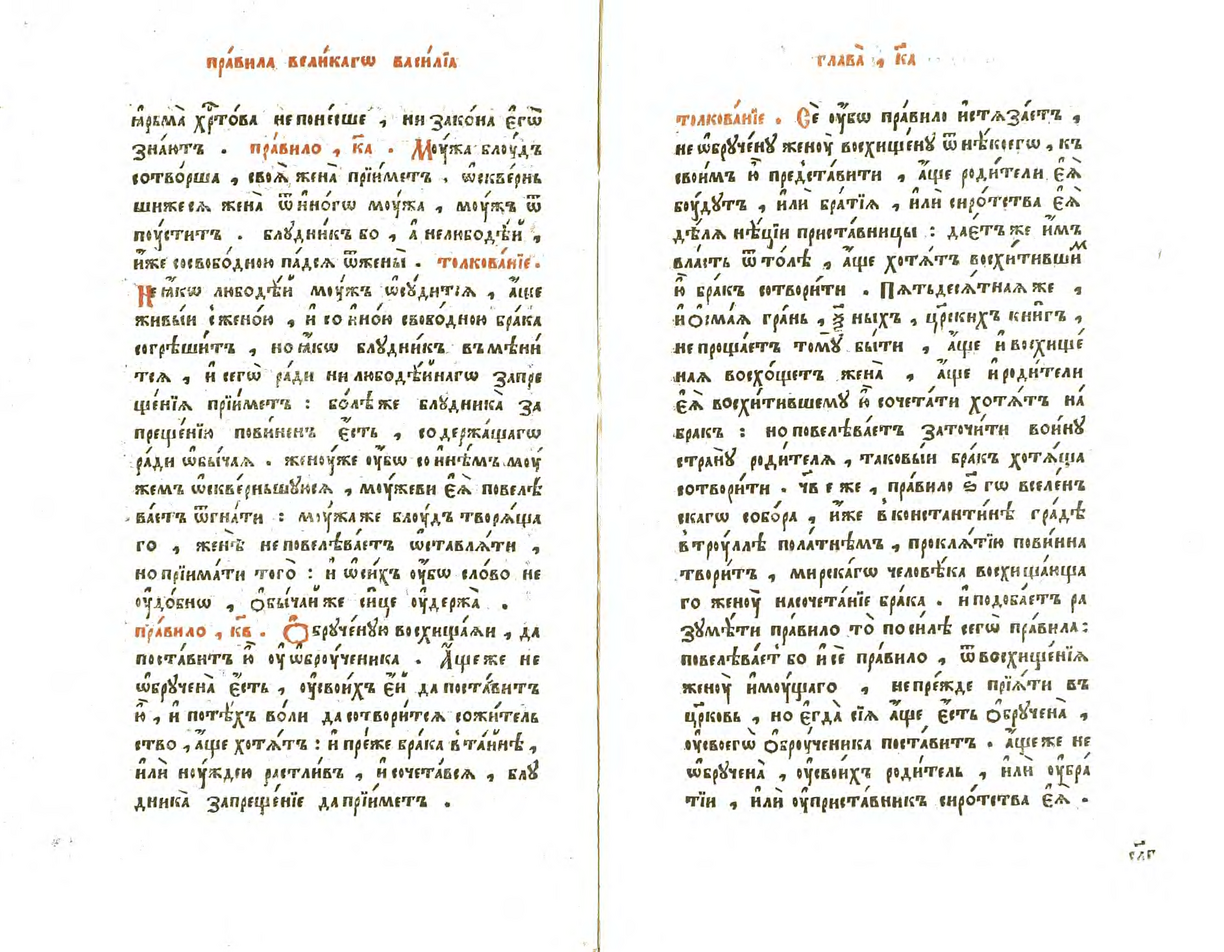 пра́вила вели́кагѡ васи́лїа
ꙗ҆рьма̀ хр҇то́ва не поне́сше , ни зако́на є҆гѡ̀
зна́ютъ . пра́вило , к҃а . Моу́жа блоу́дъ
сотво́рша , своѧ̀ жена̀ прїи́метъ . ѡ҆скве́рнь
шижесѧ жена̀ ѿ и҆но́гѡ моу́жа , моу́жъ ѿ
поу́ститъ . блꙋ́дникъ бо , а҆ нелюбодѣ́й ,
и҆́же сосвобо́дною па́дсѧ ѿжены̀ . толкова́нїе .
Не ꙗ҆́кѡ любодѣ́й моу́жъ ѡ҆сꙋ́дитсѧ , а҆́ще
живы́и сжено́ю , и҆ со и҆но́ю свобо́дною бра́ка
согрѣши́тъ , но ꙗ҆́кѡ блꙋ́дникъ въмѣни́
тсѧ , и҆ сегѡ̀ ра́ди ни любодѣ́йнагѡ запре
ще́нїѧ прїи́метъ : бо́лѣже блꙋдника̀ за
преще́нїю пови́ненъ є҆́сть , содержа́щагѡ
ра́ди ѡ҆бы́чаѧ . женоу́же оу҆́бѡ со и҆нѣ́мъ моу́
жемъ ѡ҆скве́рньшꙋюсѧ , моу́жеви є҆ѧ̀ повелѣ
ва́етъ ѿгна́ти : моу́жаже блоу́дъ творѧ́ща
го , женѣ̀ не повелѣва́етъ ѡ҆ставлѧ́ти ,
но прїима́ти того̀ : и҆ ѡ҆си́хъ оу҆́бѡ сло́во не
оу҆до́бнѡ , ѻ҆бы́чай же си́це оу҆держа̀ .
пра́вило , к҃в . Ѻ҆брꙋче́нꙋю восхища́ѧи , да
поста́витъ ю҆̀ оу҆ ѡ҆броу́ченика . А҆́ще же не
ѡ҆брꙋчена̀ є҆́сть , оу҆свои́хъ є҆́й да поста́витъ
ю҆̀ , и҆ потѣ́хъ во́ли да сотвори́тсѧ сожи́тель
ство , а҆́ще хотѧ́тъ : и҆ пре́же бра́ка вта́йнѣ ,
и҆лѝ ноу́ждею растли́въ , и҆ сочета́всѧ , блꙋ
дника̀ запреще́нїе да прїи́метъ .
глава̀ , к҃а
толкова́нїе . Сѐ оу҆́бѡ пра́вило и҆стѧза́етъ ,
не ѡ҆брꙋче́нꙋ женоу̀ восхище́нꙋ ѿ нѣ́коегѡ , къ
свои́мъ ю҆̀ предста́вити , а҆́ще роди́тели є҆ѧ̀
боу́дꙋтъ , и҆лѝ бра́тїѧ , и҆лѝ сиро́тства є҆ѧ̀
дѣ́лѧ нѣ́цїи приста́вницы : дае́тъ же и҆̀мъ
вла́сть ѿто́лѣ , а҆́ще хотѧ́тъ восхи́тившим
ю҆̀ бра́къ сотвори́ти . Пѧтьдесѧ́тнаѧ же ,
и҆ ѻ҆сма́ѧ гра́нь , ѯ҃ ныхъ , цр҇скихъ кни́гъ ,
не проща́етъ томꙋ̀ бы́ти , а҆́ще и҆ восхище́
наѧ восхо́щетъ жена̀ , а҆́ще и҆ роди́тели
є҆ѧ̀ восхи́тившемꙋ ю҆̀ сочета́ти хотѧ́тъ на́
бракъ : но повелѣва́етъ заточи́ти вои́нꙋ
странꙋ̀ роди́телѧ , таковы́и бра́къ хотѧ́ща
сотвори́ти . ч҃в е же , пра́вило ѕ҃ гѡ вселе́нъ
скагѡ собо́ра , и҆́же вконстанти́нѣ гра́дѣ
втроу́ллѣ пола́тнѣмъ , проклѧ́тїю пови́нна
твори́тъ , мирска́гѡ человѣ́ка восхища́юща
го женоу̀ насочета́нїе бра́ка . и҆ подоба́етъ ра
зꙋмѣ́ти пра́вило то̀ по си́лѣ сегѡ̀ пра́вила :
повелѣва́ет бо и҆ сѐ пра́вило , ѿ восхище́нїѧ
женоу̀ и҆моу́щаго , не пре́жде прїѧ́ти въ
цр҃ковь , но є҆гда̀ сїѧ̀ а҆́ще є҆́сть ѻ҆брꙋчена̀ ,
оу҆своегѡ̀ ѻ҆броу́ченика поста́витъ . а҆́ще же не
ѡ҆брꙋчена̀ , оу҆свои́хъ роди́тель , и҆лѝ оу҆бра́
тїи , и҆лѝ оу҆приста́вникъ сиро́тства є҆ѧ̀ .